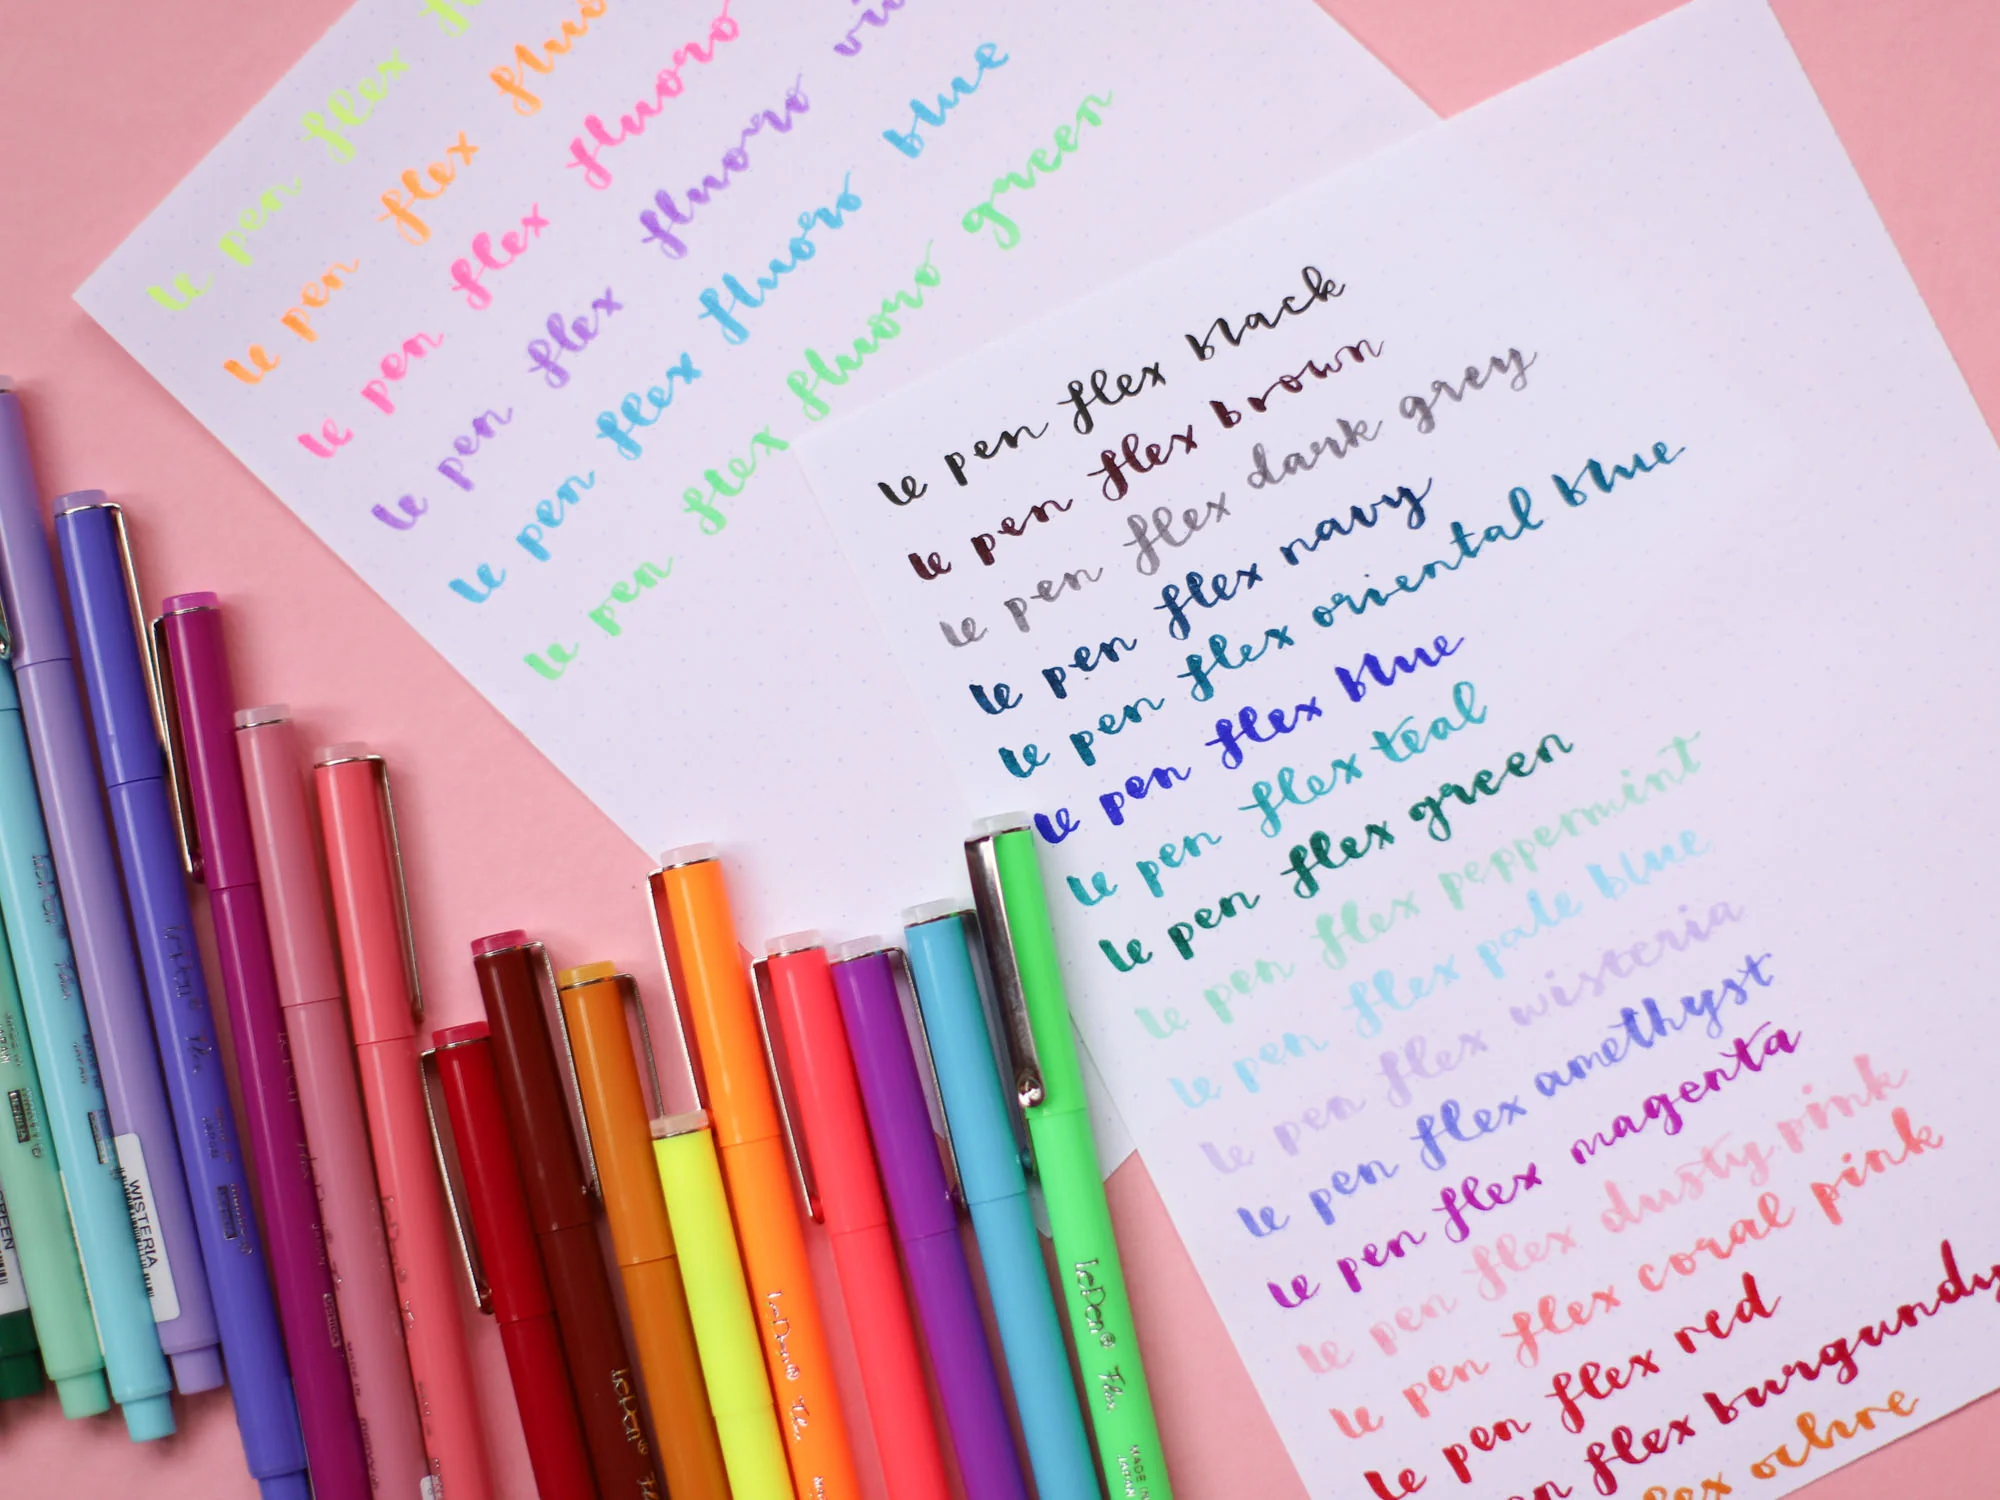 le pen flex
le pen flex fluoro
le pen flex fluoro
le pen flex fluoro
le pen flex fluoro blue
le pen flex fluoro green
le pen flex black
le pen flex brown
le pen flex dark grey
le pen flex navy
le pen flex oriental blue
le pen flex blue
le pen flex teal
le pen flex green
le pen flex peppermint
le pen flex pale blue
le pen flex wisteria
le pen flex amethyst
le pen flex magenta
le pen flex dusty pink
le pen flex coral pink
le pen flex red
flex burgundy
ochre
WISTERIA
LePen® Flex
LePen® Flex
MADE IN
JAPAN
LePen®